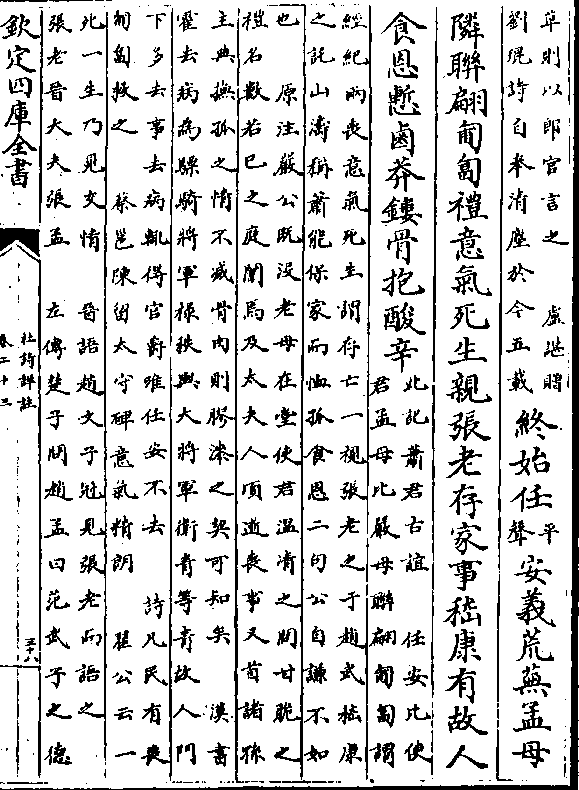 草則以郎官言之　盧諶贈
劉琨詩自奉清塵於今五載
終始任平聲安義荒蕪孟母
隣聯翩匍匐禮意氣死生親張老存家事嵇康有故人
食恩慙鹵莽鏤骨抱酸辛
此記蕭君古誼　任安比使
君孟母比嚴母聯翩匍匐謂
經紀兩喪意氣死生謂存亡一視張老之于趙武嵇康
之託山濤稱蕭能保家而恤孤食恩二句公自謙不如
也　原注嚴公既沒老母在堂使君溫凊之問甘脆之
禮名數若己之庭闈焉及太夫人頃逝喪事又首諸孫
主典撫孤之情不減骨肉則膠漆之契可知矣　漢書
霍去病為驃騎將軍祿秩與大將軍衛青等青故人門
下多去事去病輒得官爵唯任安不去　詩凡民有喪
匍匐救之　蔡邕陳留太守碑意氣精朗　翟公云一
死一生乃見交情　晉語趙文子冠見張老而語之
張老晉大夫張孟　左傳楚子問趙孟曰范武子之德
欽定四庫全書
杜詩詳註
卷二十三
五十八